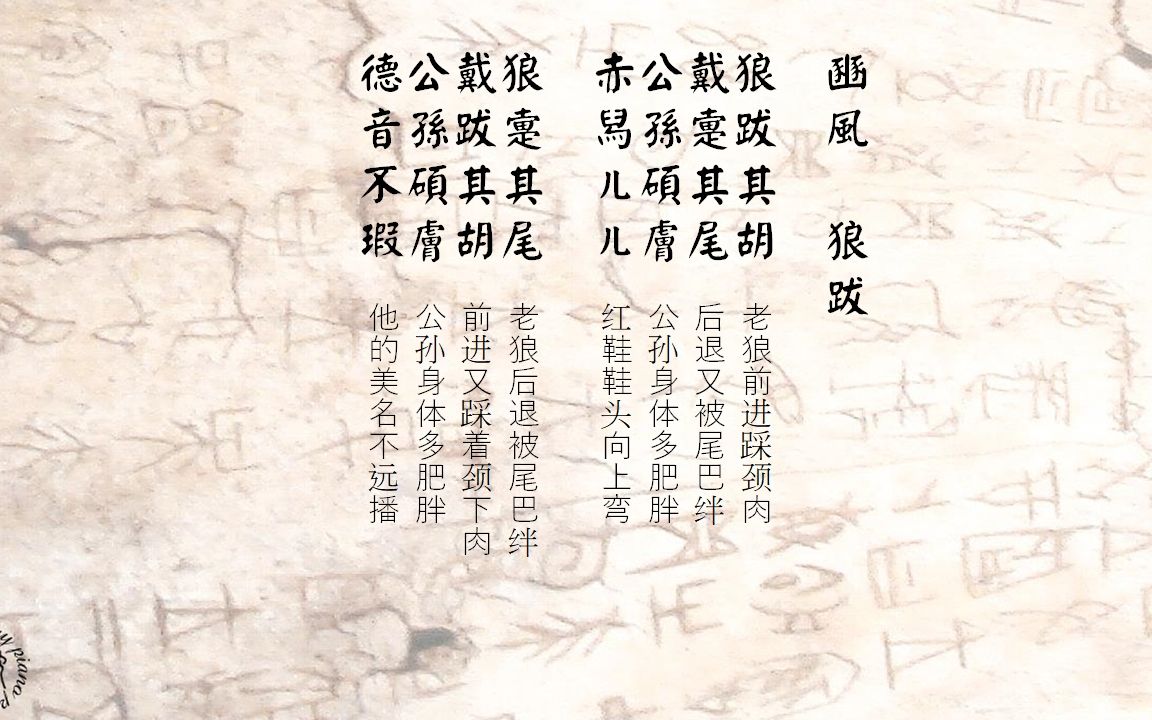 豳風 狼跋
狼跋其胡
戴疐其尾
公孫碩膚
赤舄儿儿
老狼前进踩颈肉
后退又被尾巴绊
公孙身体多肥胖
红鞋鞋头向上弯
狼疐其尾
戴跋其胡
公孫碩膚
德音不瑕
老狼后退被尾巴绊
前进又踩着颈下肉
公孙身体多肥胖
他的美名不远播
piano